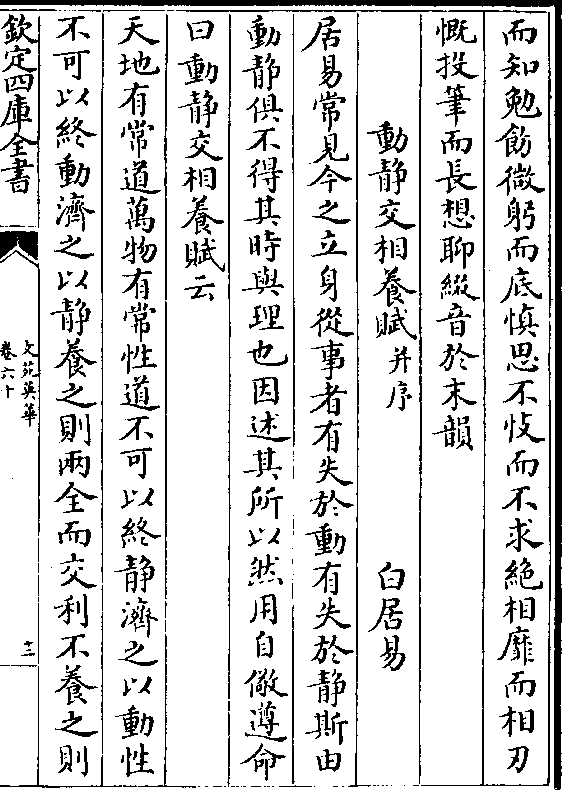 而知勉飭微躬而底慎思不忮而不求絶相靡而相刃
慨投筆而長想聊綴音於末韻
動静交相養賦并序 白居易
居易常見今之立身從事者有失於動有失於静斯由
動静俱不得其時與理也因述其所以然用自儆遵命
曰動静交相養賦云
天地有常道萬物有常性道不可以終静濟之以動性
不可以終動濟之以静養之則兩全而交利不養之則
欽定四庫全書
文苑英華
卷六十
十二